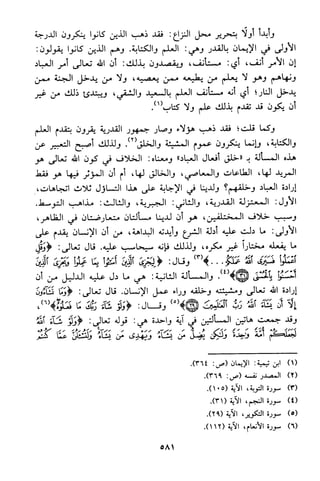 وأبدأ أولًا بتحرير محل النزاع: فقد ذهب الذين كانوا ينكرون الدرجة
الأولى في الإيمان بالقدر وهي: العلم والكتابة. وهم الذين كانوا يقولون:
إن الأمر أُنف، أي: مستأنف، ويقصدون بذلك: أن الله تعالى أمر العباد
ونهاهم وهو لا يعلم من يطيعه ممن يعصيه، ولا من يدخل الجنة ممن
يدخل النار؛ أي أنه مستأنف العلم بالسعيد والشقي، ويبتدئ ذلك من غير
أن يكون قد تقدم بذلك علم ولا كتاب(١).
وكما قلت؛ فقد ذهب هؤلاء وصار جمهور القدرية يقرون بتقدم العلم
والكتابة، وإنما ينكرون عموم المشيئة والخلق(٢). ولذلك أصبح التعبير عن
هذه المسألة بـ «خلق أفعال العباد» ومعناه: الخلاف في كون الله تعالى هو
المريد لها، الطاعات والمعاصي، والخالق لها، أم أن المؤثر فيها هو فقط
إرادة العباد وخلقهم؟ ولدينا في الإجابة على هذا التساؤل ثلاث اتجاهات،
الأول: المعتزلة القدرية، والثاني: الجبرية، والثالث: مذاهب التوسط.
وسبب خلاف المختلفين، هو أن لدينا مسألتان متعارضتان في الظاهر،
الأولى: ما دلت عليه أدلة الشرع وأيدته البداهة، من أن الإنسان يقدم على
ما يفعله مختارًا غير مكره، ولذلك فإنه سيحاسب عليه. قال تعالى: ﴿وَقُلِ
ٱعْمَلُوا۟ فَسَيَرَى ٱللَّهُ عَمَلَكُمْ...﴾(٣) وقال: ﴿لِيَجْزِىَ ٱلَّذِينَ أَسَـٰٓـُٔوا۟ بِمَا عَمِلُوا۟ وَيَجْزِىَ ٱلَّذِينَ
أَحْسَنُوا۟ بِٱلْحُسْنَى ﴿٣١﴾﴾(٤). والمسألة الثانية: هي ما دل عليه الدليل من أن
إرادة الله تعالى ومشيئته وخلقه وراء عمل الإنسان. قال تعالى: ﴿وَمَا تَشَآءُونَ
إِلَّآ أَن يَشَآءَ ٱللَّهُ رَبُّ ٱلْعَـٰلَمِينَ ﴿٢٩﴾﴾(٥) وقال: ﴿وَلَوْ شَآءَ رَبُّكَ مَا فَعَلُوهُ﴾(٦)،
وقد جمعت هاتين المسألتين في آية واحدة هي: قوله تعالى: ﴿وَلَوْ شَآءَ ٱللَّهُ
لَجَعَلَكُمْ أُمَّةً وَٰحِدَةً وَلَـٰكِن يُضِلُّ مَن يَشَآءُ وَيَهْدِى مَن يَشَآءُ وَلَتُسْـَٔلُنَّ عَمَّا كُنتُمْ
(١) ابن تيمية: الإيمان (ص: ٣٦٤).
(٢) المصدر نفسه (ص: ٣٦٩).
(٣) سورة التوبة، الآية (١٠٥).
(٤) سورة النجم، الآية (٣١).
(٥) سورة التكوير، الآية (٢٩).
(٦) سورة الأنعام، الآية (١١٢).
٥٨١